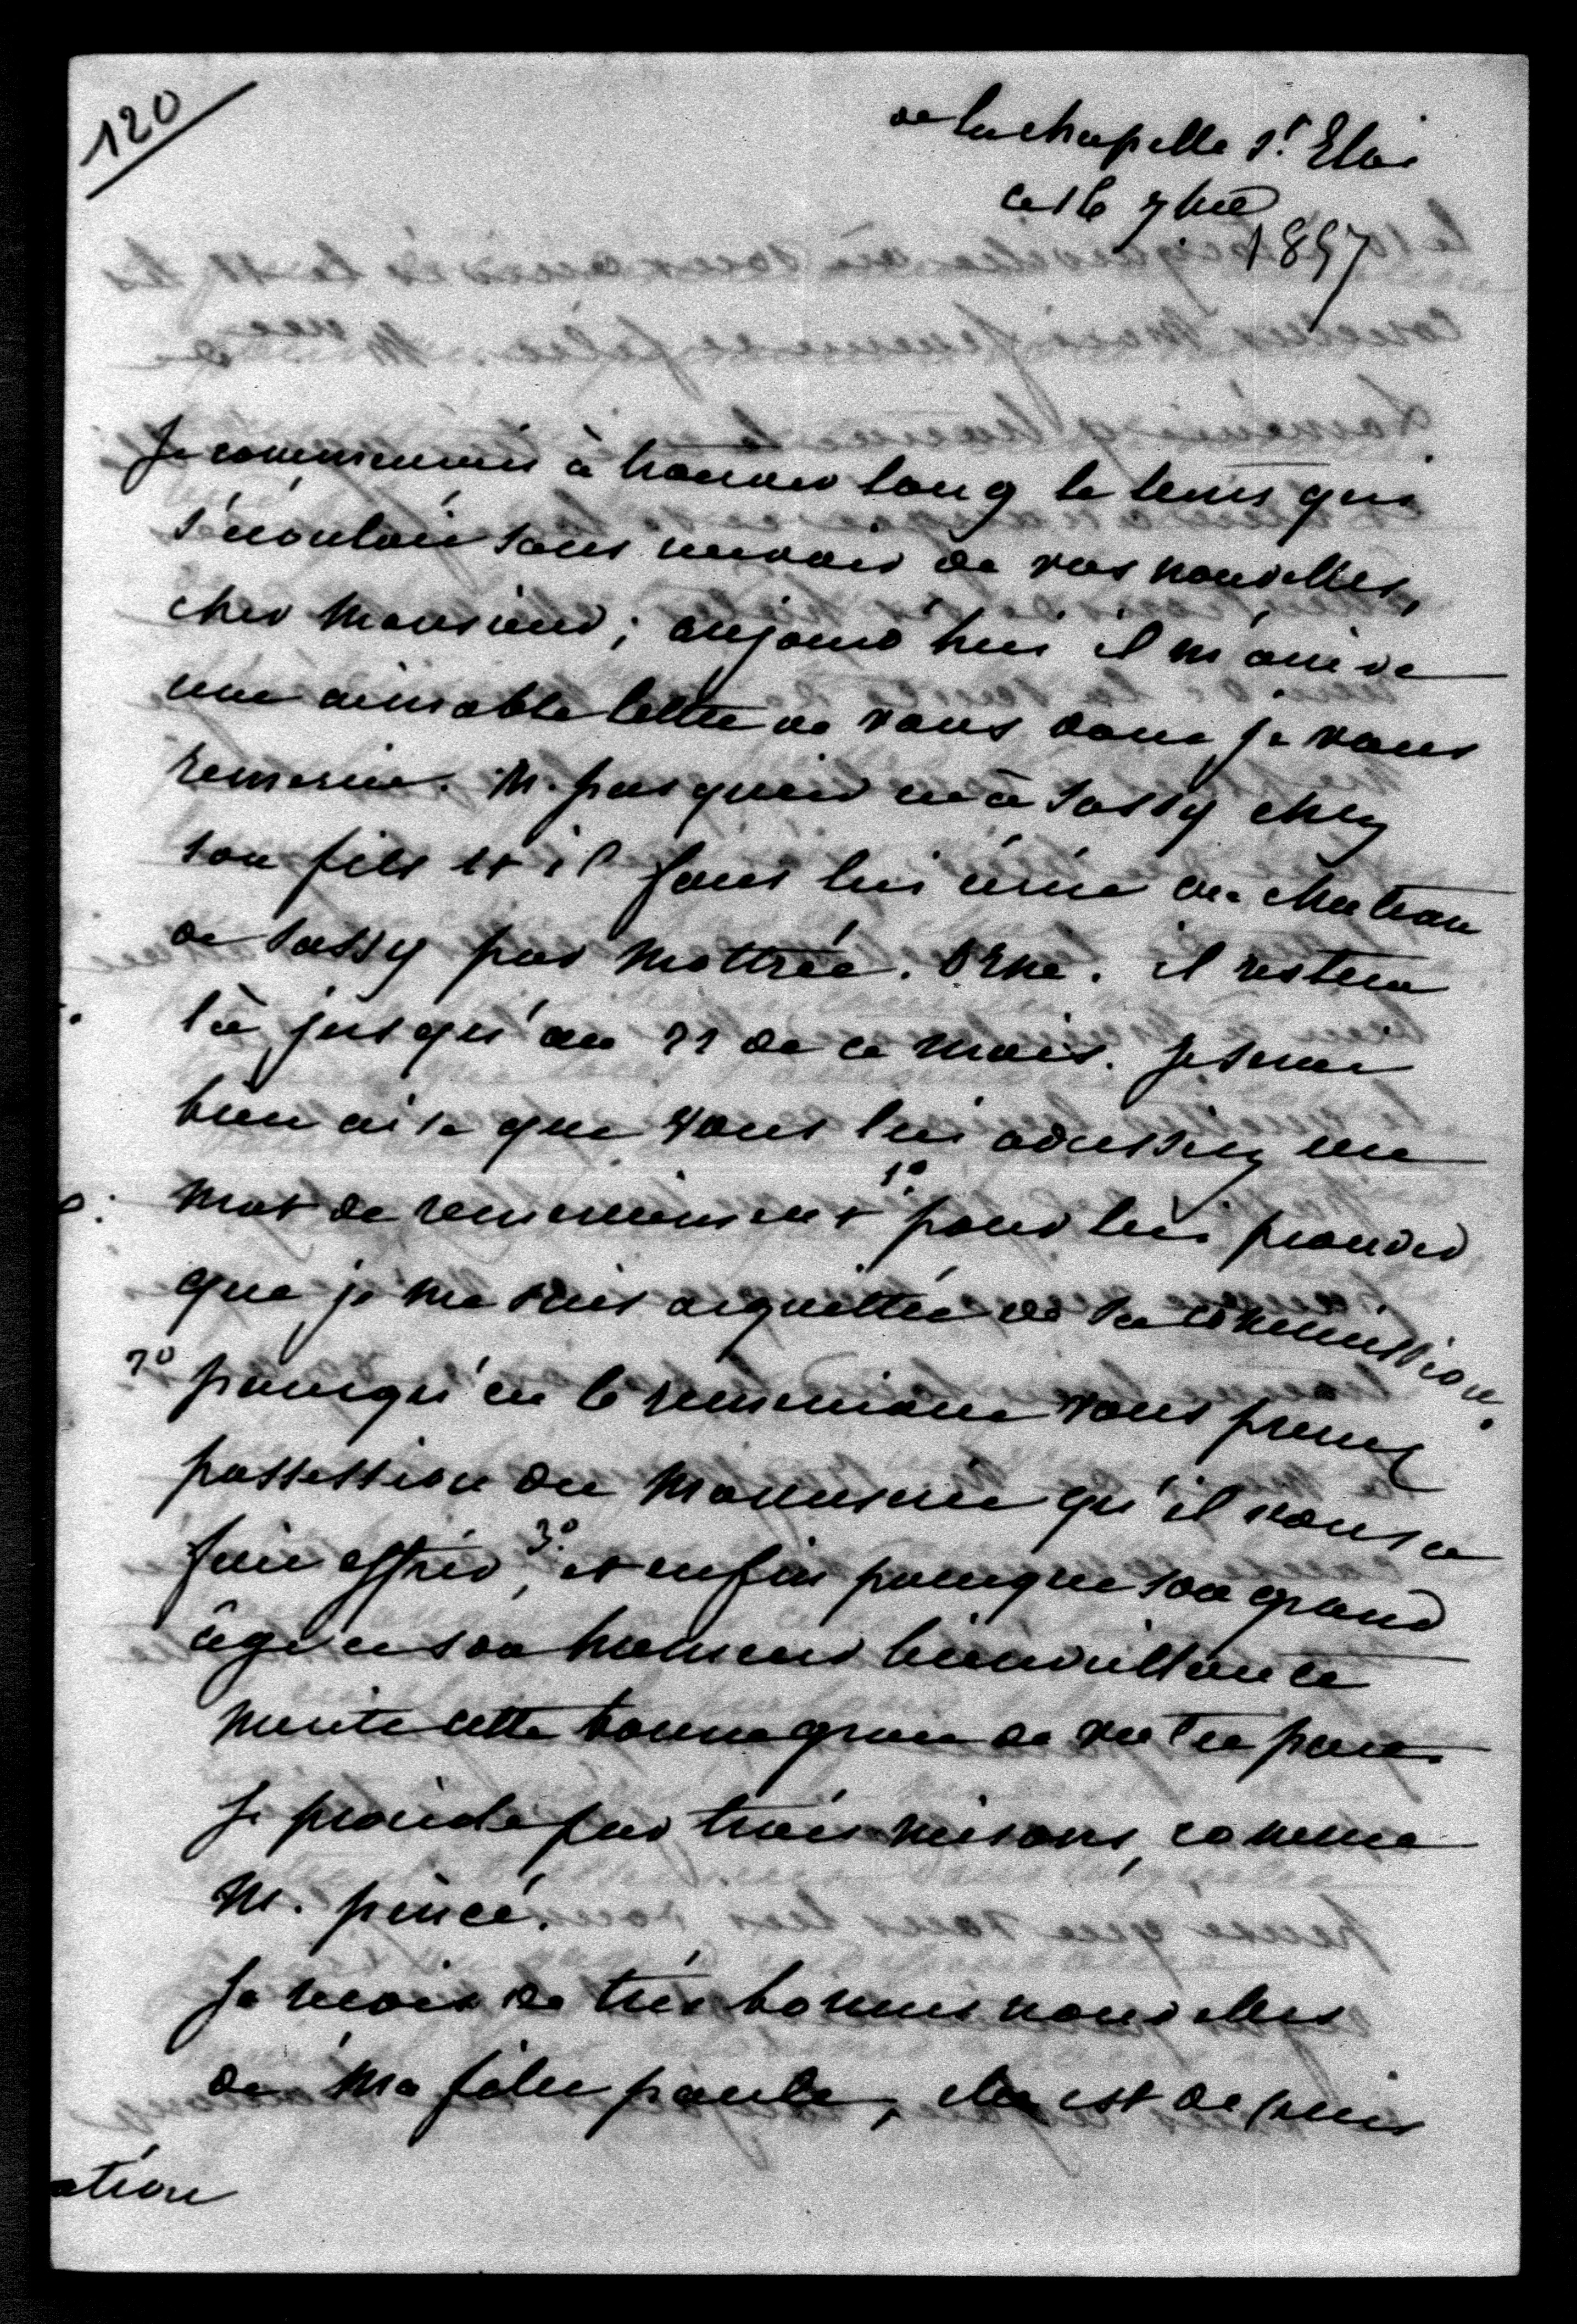 120
de la chapelle St. Eloi
ce 16 7bre
1857
Je commencais à trouver long le tems qui
s'écouloit sans recevoir de vos nouvelles,
cher Monsieur ; aujourd'hui il m'arrive
une aimable lettre de vous dont je vous
remercie. M. pasquier est à Sassy chez
son fils et il faut lui écrire au chateau
de Sassy par Mottrée. Orne. il restera
là jusqu'au 22 de ce mois. Je serai
bien aise que vous lui adressiez un
mot de remerciement 1º. pour lui prouver
que je me suis acquittée de sa commission.
2º pourqu'en le remerciant vous preniez
possession du manuscrit qu'il vous a
fait offrir, 3º. et enfin pourque son grand
âge et son humeur bienveillante
merite cette bonne grace de votre part.
Je procède par trois raisons, comme
M. pincé.
Je reçois de très bonnes nouvelles
de ma fille paule, elle est depuis
ation